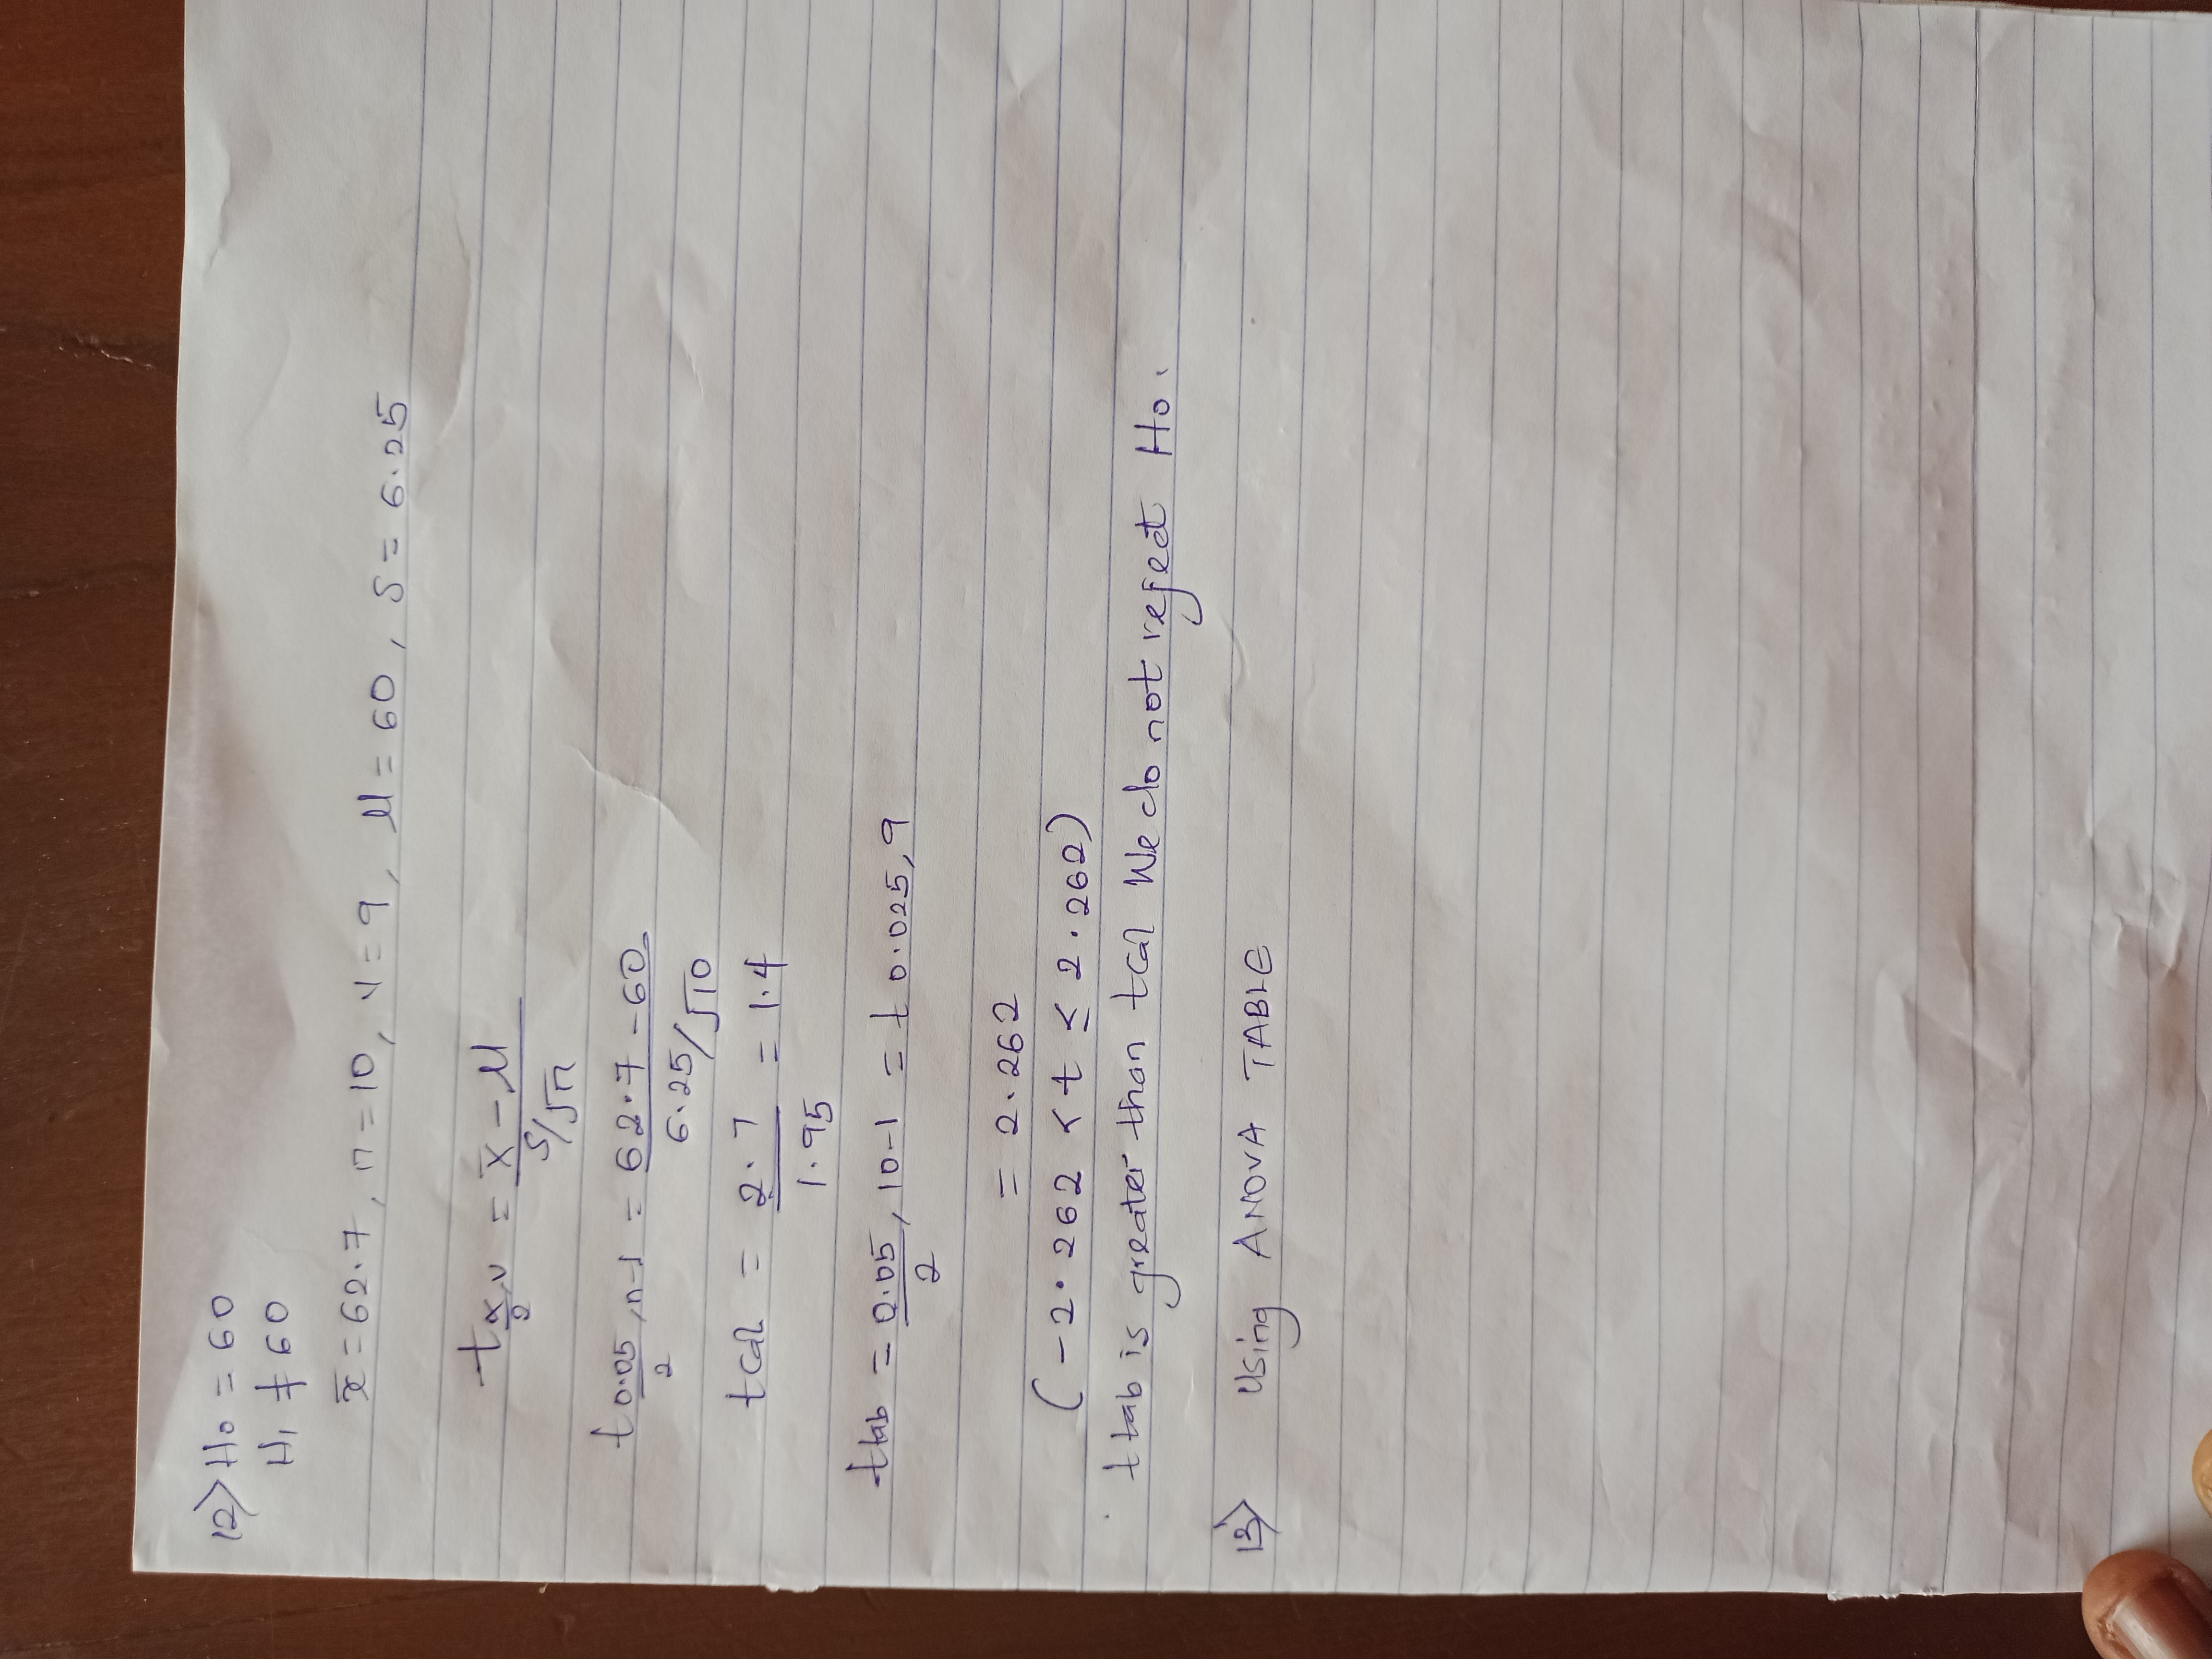 12) Ho = 60
H1 ≠ 60
x̄ = 62.7, n = 10, v = 9, μ = 60, S = 6.25
t α/2, v = (x̄ - μ) / (S/√n)
t 0.05/2, n-1 = (62.7 - 60) / (6.25/√10)
tcal = 2.7/1.95 = 1.4
ttab = 0.05/2, 10-1 = t 0.025, 9
= 2.262
(-2.262 < t ≤ 2.262)
ttab is greater than tcal We do not reject Ho.
13) Using ANOVA TABLE